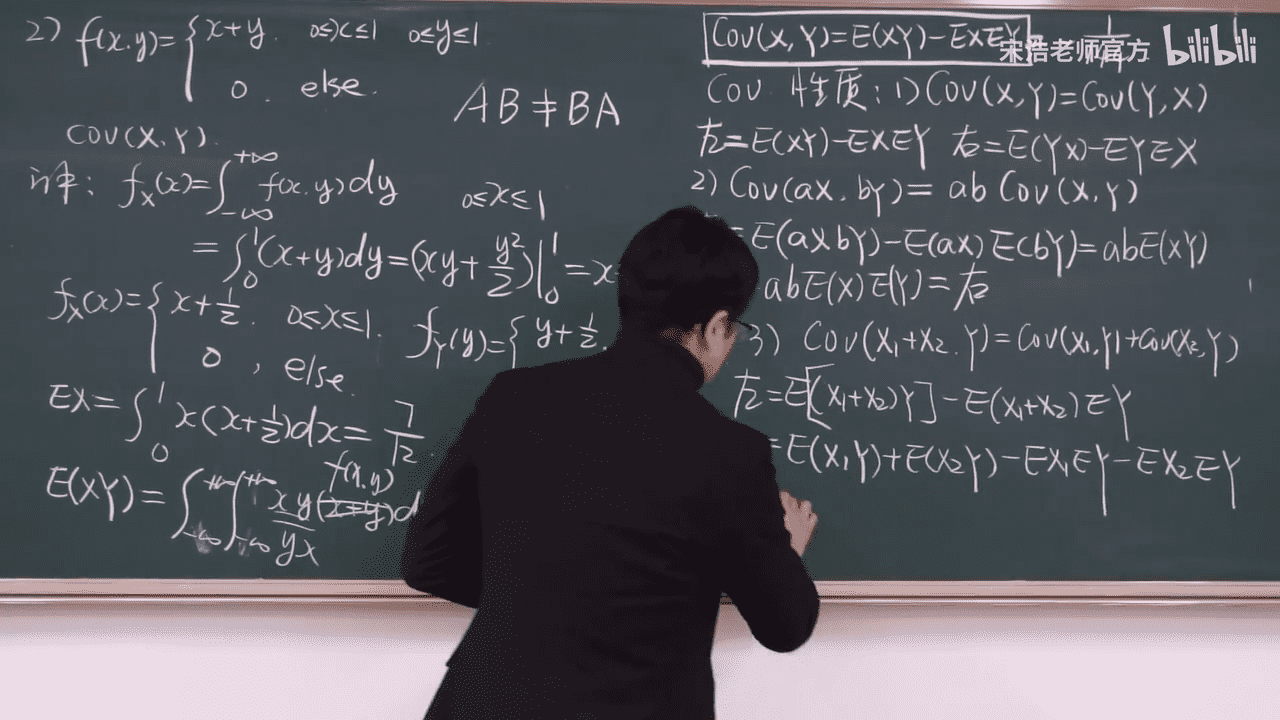 2) f(x,y)= { x+y. 0≤x≤1 0≤y≤1
0. else.
AB≠BA
COV(X,Y).
解: f_X(x)=∫_{-∞}^{+∞} f(x,y)dy 0≤x≤1
=∫_0^1(x+y)dy=(xy+y²/2)|_0^1=x
f_X(x)= { x+1/2. 0≤x≤1.
0, else.
f_Y(y)= { y+1/2.
EX=∫_0^1 x(x+1/2)dx=7/12.
E(XY)=∫_{-∞}^{+∞}∫_{-∞}^{+∞} xy(x+y)d
f(x,y)
yx
Cov(X,Y)=E(XY)-EXEY
宋浩老师官方 bilibili
Cov 性质: 1) Cov(X,Y)=Cov(Y,X)
左=E(XY)-EXEY 右=E(YX)-EYEX
2) Cov(aX,bY)=abCov(X,Y)
=E(aXbY)-E(aX)E(bY)=abE(XY)
abE(X)E(Y)=右
3) Cov(X₁+X₂,Y)=Cov(X₁,Y)+Cov(X₂,Y)
左=E[(X₁+X₂)Y]-E(X₁+X₂)EY
=E(X₁Y)+E(X₂Y)-EX₁EY-EX₂EY